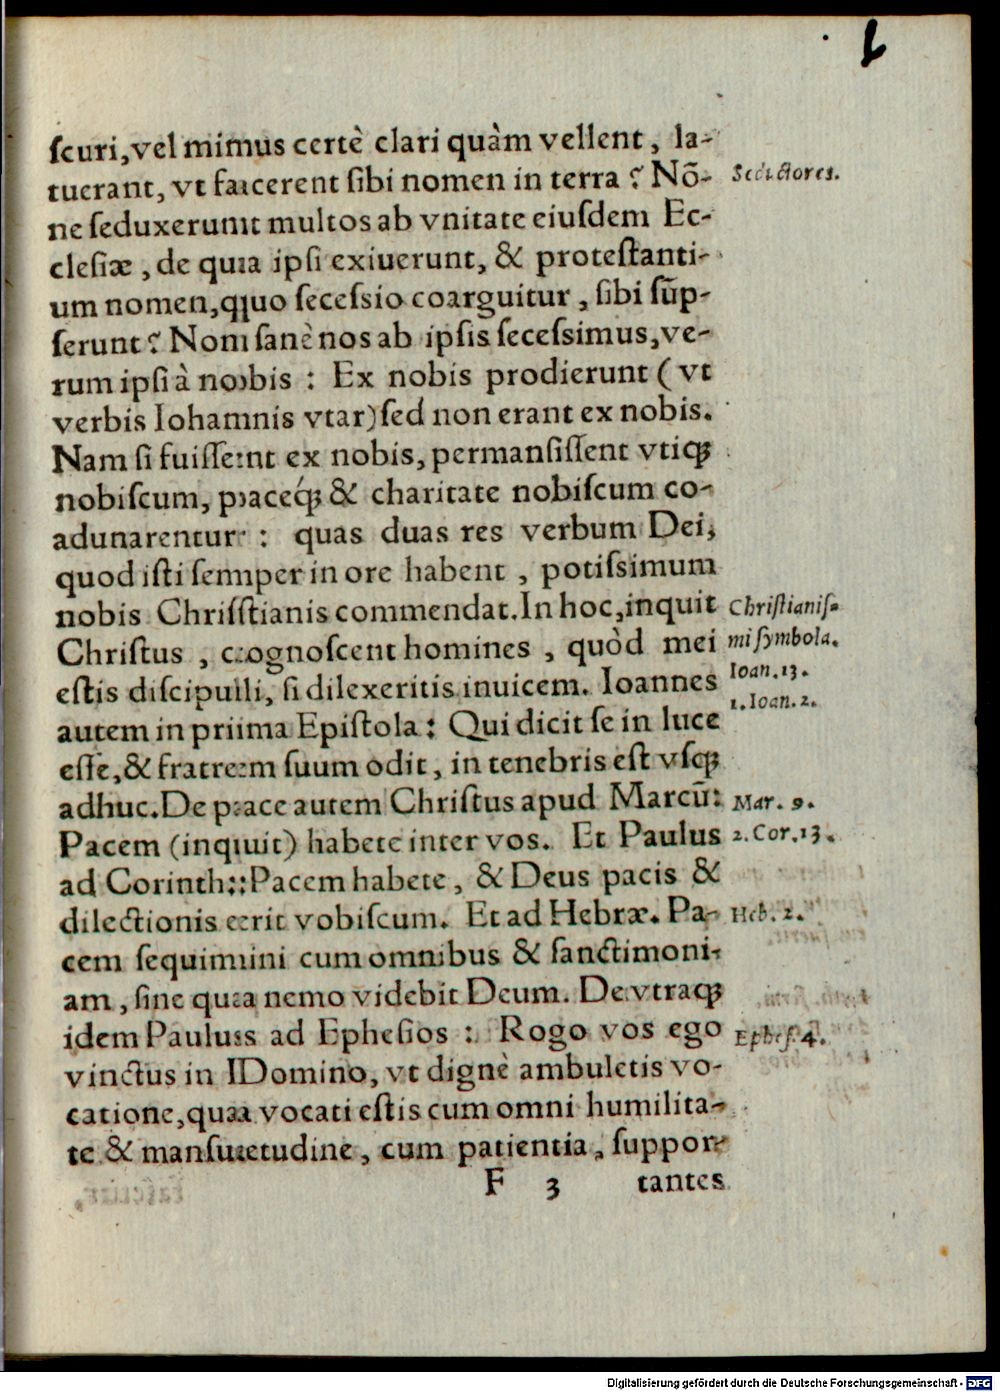 ſcuri, vel minus certè clari quàm vellent, la-
tuerant, vt facerent ſibi nomen in terra? Nõ-
Seductores.
ne ſeduxerunt multos ab vnitate eiuſdem Ec-
cleſiæ, de qua ipſi exiuerunt, & proteſtanti-
um nomen, quo ſeceſsio coarguitur, ſibi ſũp-
ſerunt? Non ſanè nos ab ipſis ſeceſsimus, ve-
rum ipſi à nobis: Ex nobis prodierunt (vt
verbis Iohannis vtar) ſed non erant ex nobis.
Nam ſi fuiſſent ex nobis, permanſiſſent vtiqꝫ
nobiſcum, paceqꝫ́ & charitate nobiſcum co-
adunarentur: quas duas res verbum Dei,
quod iſti ſemper in ore habent, potiſsimum
nobis Chriſtianis commendat. In hoc, inquit
Chriſtianiſ-
Chriſtus, cognoſcent homines, quòd mei
mi ſymbola.
eſtis diſcipuli, ſi dilexeritis inuicem. Ioannes
Ioan. 13.
1. Ioan. 2.
autem in prima Epiſtola: Qui dicit ſe in luce
eſſe, & fratrem ſuum odit, in tenebris eſt vſqꝫ
adhuc. De pace autem Chriſtus apud Marcũ:
Mar. 9.
Pacem (inquit) habete inter vos. Et Paulus
2. Cor. 13.
ad Corinth: Pacem habete, & Deus pacis &
dilectionis erit vobiſcum. Et ad Hebræ. Pa-
Heb. 2.
cem ſequimini cum omnibus & ſanctimoni-
am, ſine qua nemo videbit Deum. De vtraqꝫ
idem Paulus ad Epheſios: Rogo vos ego
Epheſ. 4.
vinctus in Domino, vt dignè ambuletis vo-
catione, qua vocati eſtis cum omni humilita-
te & manſuetudine, cum patientia, ſuppor-
F 3 tantes
Digitalisierung gefördert durch die Deutsche Forschungsgemeinschaft - DFG